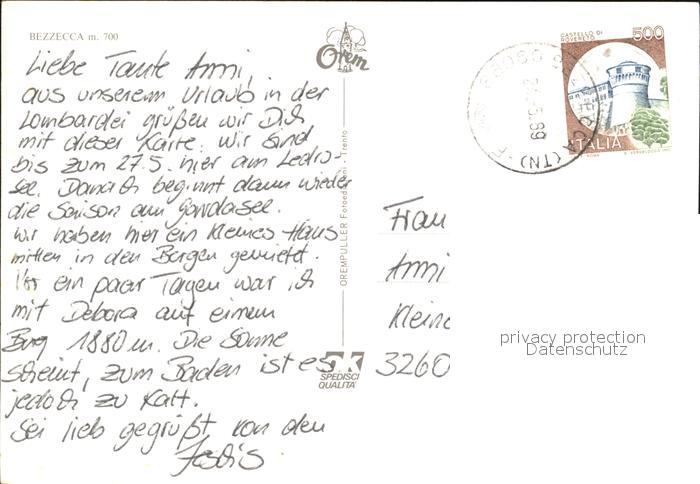 BEZZECCA m. 700
Orem
Liebe Tante Anni,
aus unserem Urlaub in der
Lombardei grüßen wir Dich
mit dieser Karte. Wir sind
bis zum 27.5. hier am Ledro-
see. Danach beginnt dann wieder
die Saison am Gardasee.
Wir haben hier ein kleines Haus
mitten in den Bergen gemietet.
Vor ein paar Tagen war ich
mit Debora auf einem
Berg 1880 m. Die Sonne
scheint, zum Baden ist es
jedoch zu kalt.
Sei lieb gegrüßt von den
OREMPULLER Fotoedizioni - Trento
OK
SPEDISCI
QUALITÀ
CASTELLO DI
ROVERETO
500
ITALIA
ROMA
(TN)
5.89
Frau
Anni
Kleine
3260
privacy protection
Datenschutz